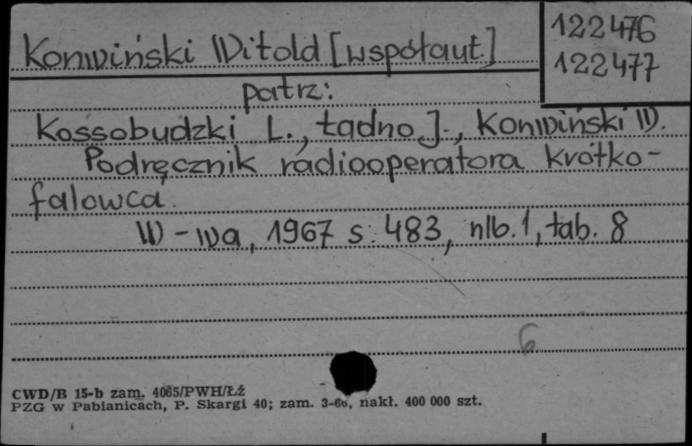 Konwiński Witold [współaut.]
122476
122477
patrz:
Kossobudzki L., Ładno J., Konwiński W.
Podręcznik radiooperatora krótko-
falowca.
W-wa, 1967 s. 483, nlb. 1, tab. 8
6
CWD/B 15-b zam. 4065/PWH/Łź
PZG w Pabianicach, P. Skargi 40; zam. 3-60, nakł. 400 000 szt.